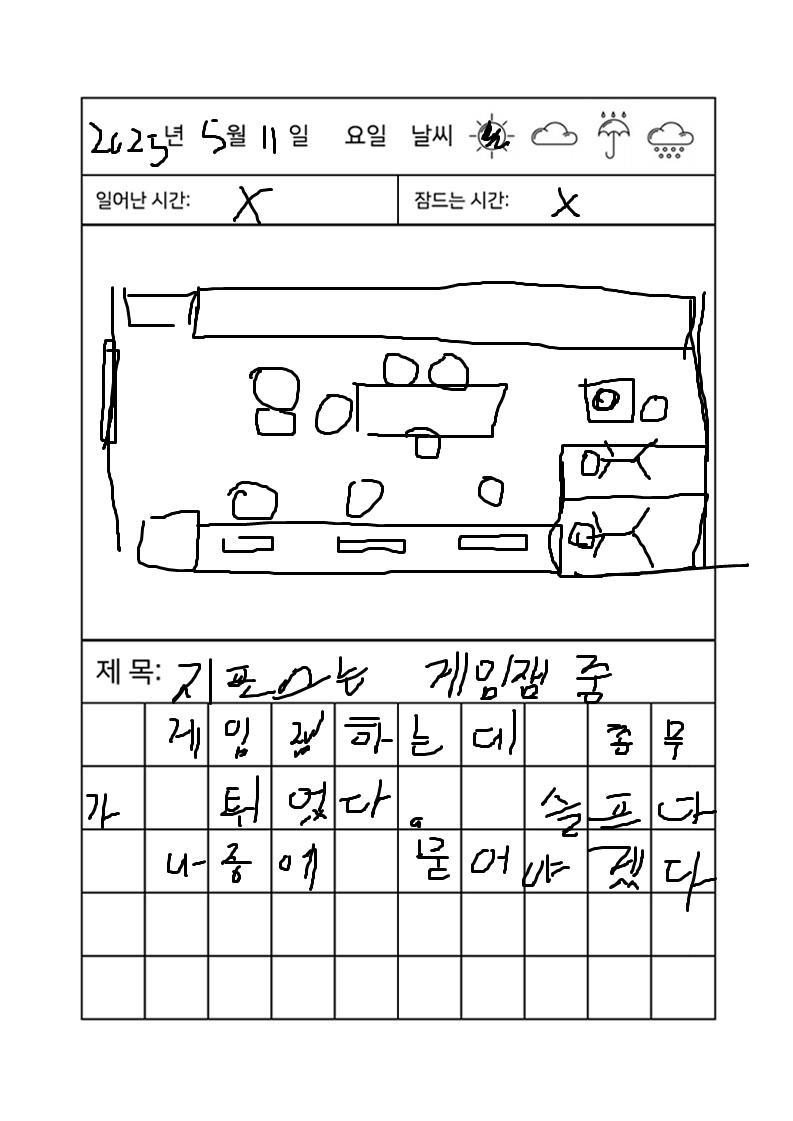 2025년 5월 11일 요일 날씨
일어난 시간: X 잠드는 시간: X
제 목: 지 는 게임잼 중
게임잼 하는데 종무
가 튀였다. 슬프다
나중에 묻어야겠다